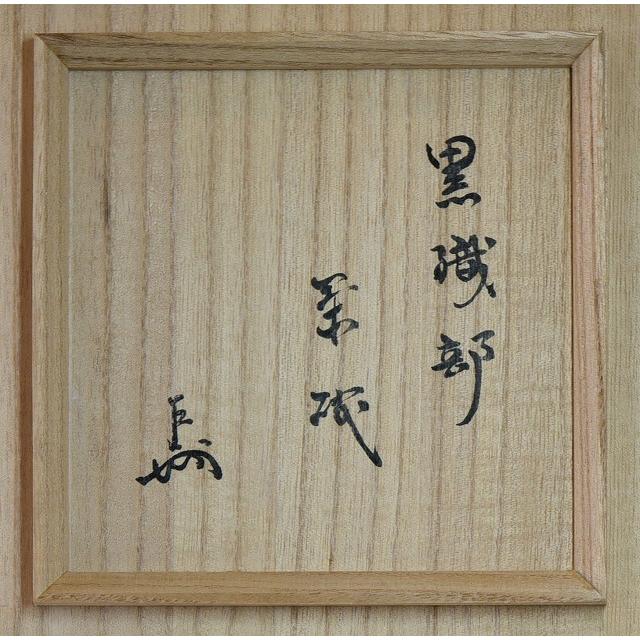 黒織部
茶碗